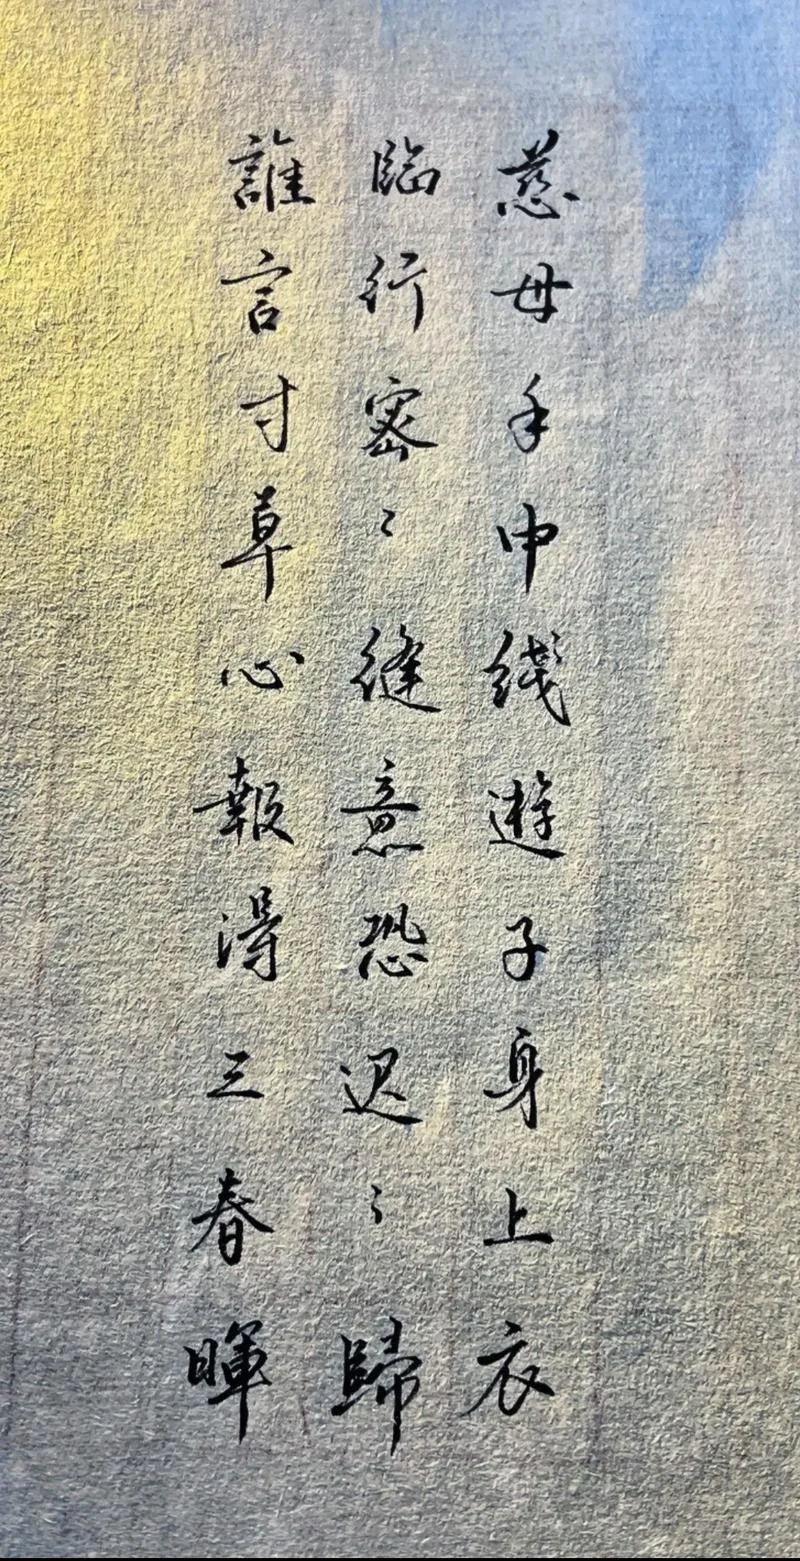 慈母手中綫遊子身上衣
臨行密〻縫意恐迟〻歸
誰言寸草心報得三春暉